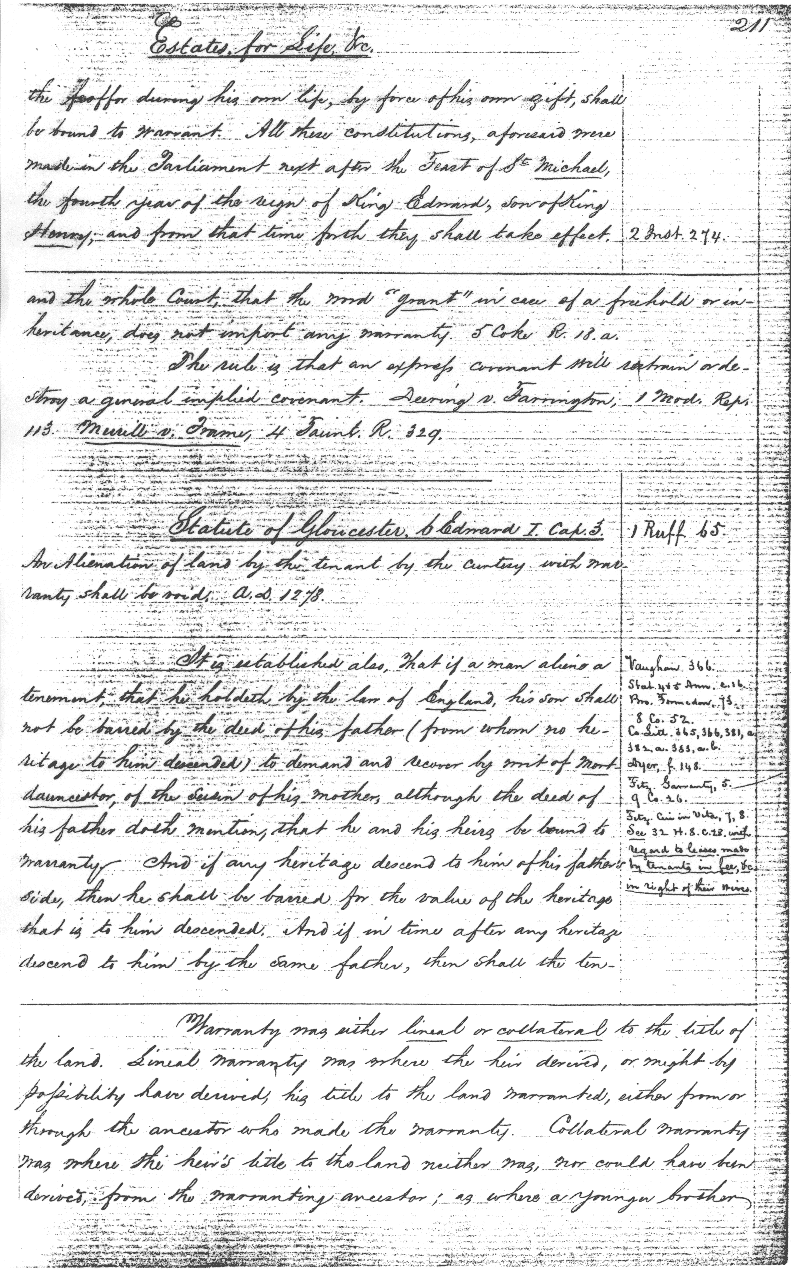 211
Estates, for Life, &c.
the feoffor during his own life, by force of his own gift, shall
be bound to warrant. All these constitutions, aforesaid were
made in the Parliament next after the Feast of St Michael,
the fourth year of the reign of King Edward, son of King
Henry; and from that time forth they shall take effect.
2 Inst. 274.
and the whole Court, that the word "grant" in case of a freehold or in-
heritance, does not import any warranty. 5 Coke R. 18. a.
The rule is that an express covenant will restrain or de-
stroy a general implied covenant. Deering v. Farrington, 1 Mod. Rep.
113. Merrill v. Frame, 4 Taunt. R. 329.
Statute of Gloucester, 6 Edward I. Cap. 3.
1 Ruff. 65.
An Alienation of land by the tenant by the curtesy with war-
ranty shall be void. A.D. 1278.
It is established also, that if a man aliene a
tenement, that he holdeth by the law of England, his son shall
not be barred by the deed of his father (from whom no he-
ritage to him descended) to demand and recover by writ of Mort
dauncestor, of the seisin of his mother, although the deed of
his father doth mention, that he and his heirs be bound to
warranty. And if any heritage descend to him of his father's
side, then he shall be barred for the value of the heritage
that is to him descended. And if in time after any heritage
descend to him by the same father, then shall the ten-
Vaughan. 366.
Stat. 4 & 5 Ann. c. 16.
Bro. Formedon, 73.
8 Co. 52.
Co. Lit. 365, 366, 381, a
382, a. 383, a. b.
Dyer, f. 148.
Fitz. Garranty, 5.
9 Co. 26.
Fitz. Cui in Vita, 7, 8.
See 32 H. 8. C. 28, with
regard to leases made
by tenants in fee, &c.
in right of their wives.
Warranty was either lineal or collateral to the title of
the land. Lineal warranty was where the heir derived, or might by
possibility have derived, his title to the land warranted, either from or
through the ancestor who made the warranty. Collateral warranty
was where the heir's title to the land neither was, nor could have been
derived, from the warranting ancestor; as where a younger brother